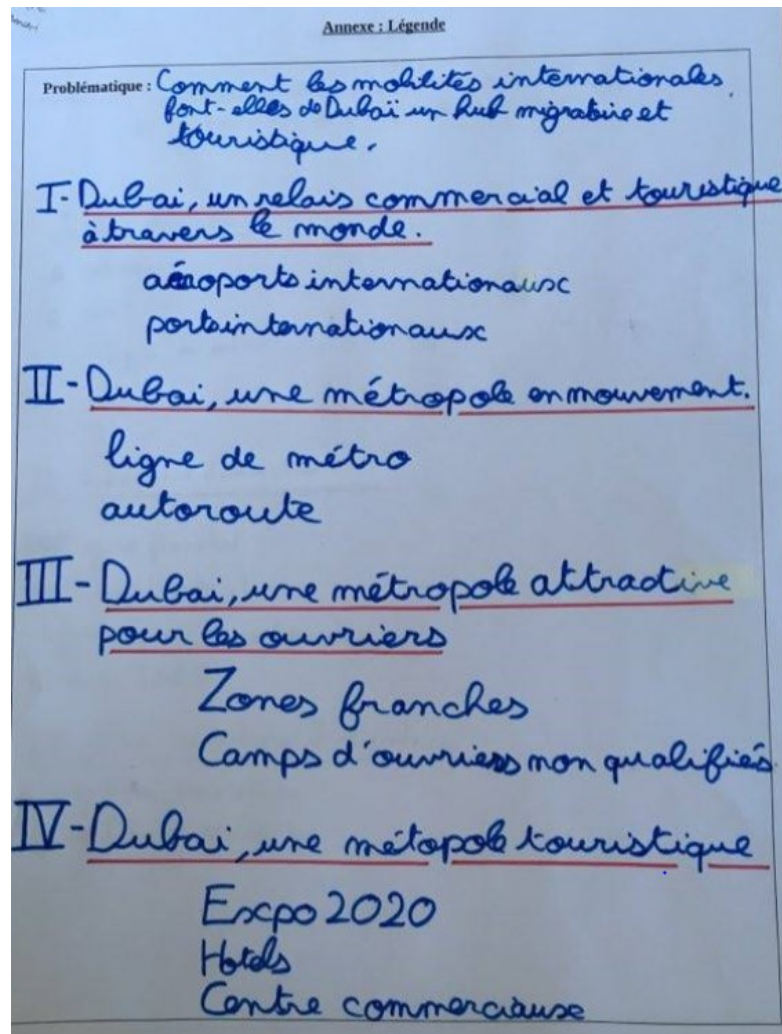 Annexe : Légende
Problématique : Comment les mobilités internationales
font-elles de Dubaï un hub migratoire et
touristique.
I- Dubai, un relais commercial et touristique
à travers le monde.
aéroports internationaux
ports internationaux
II- Dubai, une métropole en mouvement.
ligne de métro
autoroute
III- Dubai, une métropole attractive
pour les ouvriers
Zones franches
Camps d'ouvriers non qualifiés
IV- Dubai, une métopole touristique
Expo 2020
Hotels
Centre commerciause